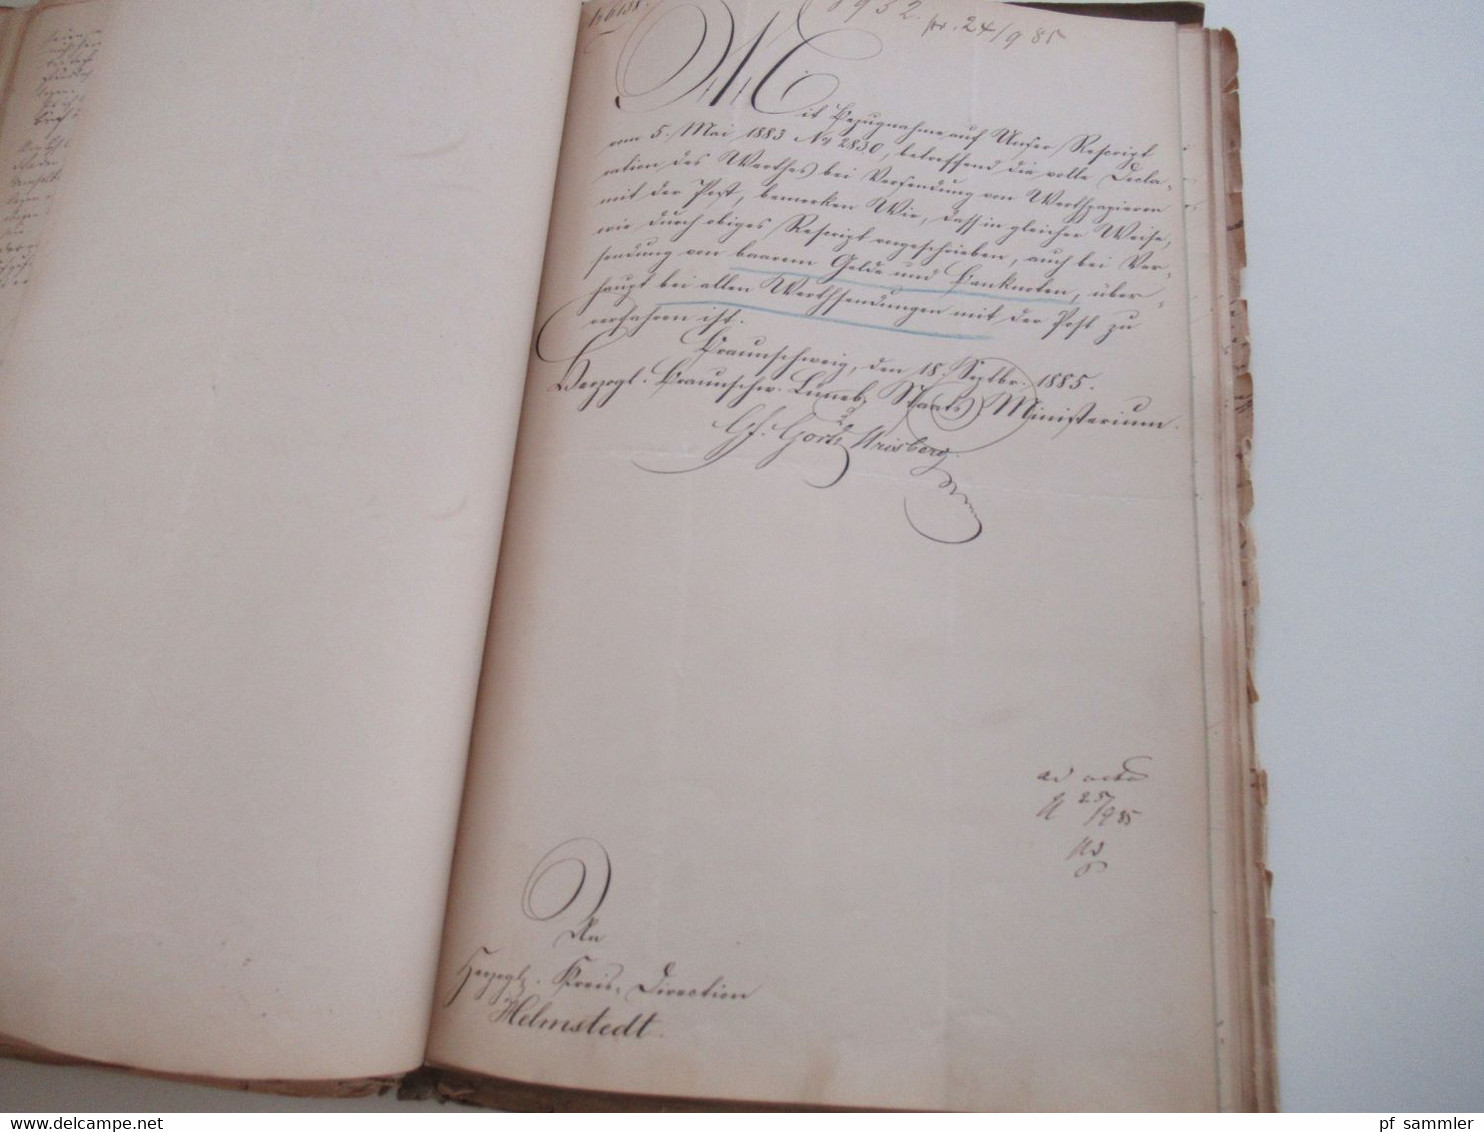 8932. pr. 24/9 85
Mit Bezugnahme auf Unser Rescript
vom 5. Mai 1883 No 2830, betreffend die volle Decla-
ration des Werthes bei Versendung von Werthpapieren
mit der Post, bemerken Wir, dass in gleicher Weise,
wie durch obiges Rescript vorgeschrieben, auch bei Ver-
sendung von baarem Gelde und Banknoten, über-
haupt bei allen Werthsendungen mit der Post zu
verfahren ist.
Braunschweig, den 18. Septbr. 1885.
Herzogl. Braunschw. Lüneb. Staats Ministerium.
Gf. Görtz Wrisberg.
ad acta
H 25/9 85
An
Herzogl. Kreis-Direction
Helmstedt.
www.delcampe.net
pf_sammler